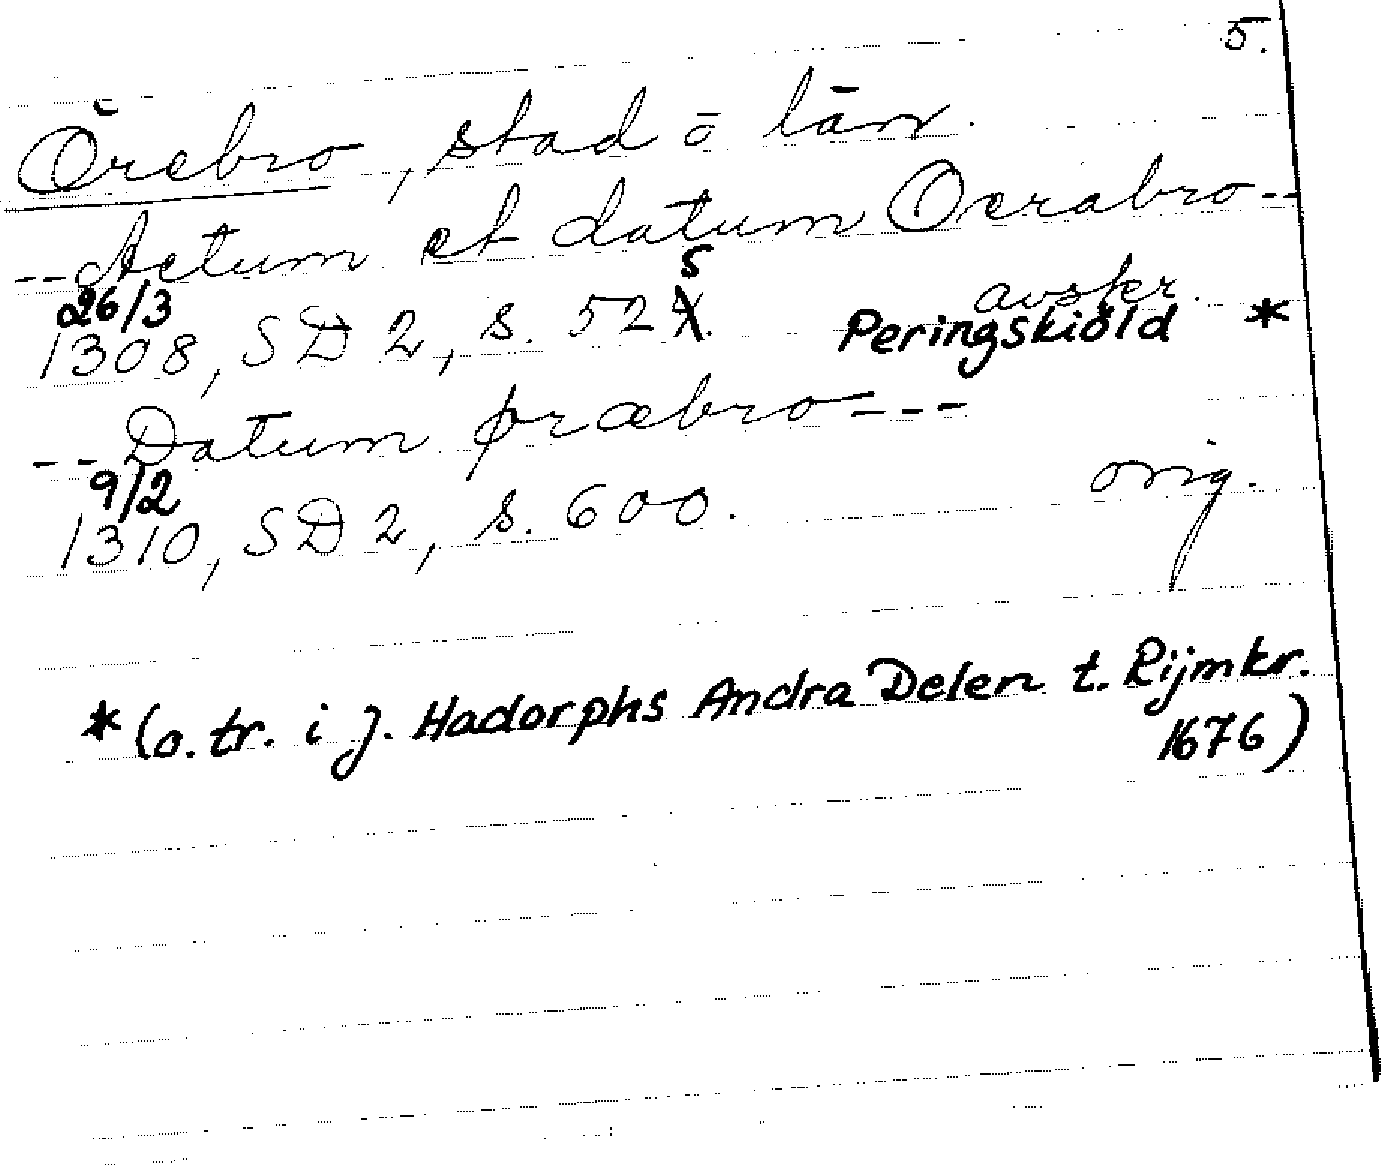 5.
Örebro, stad o län.
--Actum et datum Oerabro--
26/3 avskr.
1308, SD 2, s. 525. Peringskiöld *
-- Datum þræbro---
9/2 orig.
1310, SD 2, s. 600.
*(o. tr. i J. Hadorphs Andra Delen t. Rijmkr.
1676)